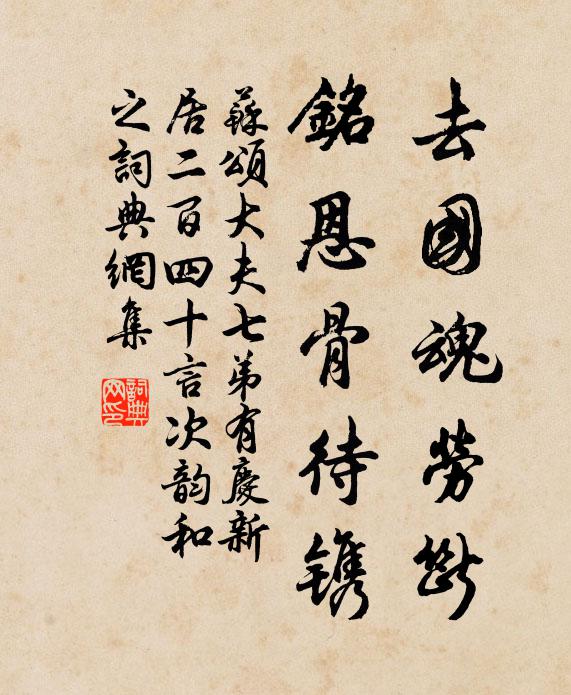 去國魂勞斷
銘恩骨待鐫
蘇頌大夫七弟有慶新
居二百四十言次韵和
之詞典網集
詞典網印